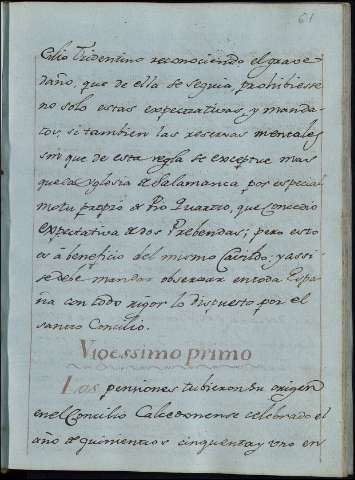 61
Cilio Tridentino reconociendo el grave
daño, que de ella se seguia, prohibiese
no solo estas expectativas, y manda-
tos, si tambien las reservas mentales
sin que de esta regla se exceptue mas
que la Yglesia de Salamanca por especial
motu proprio de Pio Quarto, que concedio
expectativa de dos Prebendas; pero esto
es á beneficio del mismo Cavildo: y assi
se debe mandar observar en toda Espa-
ña con todo rigor lo dispuesto por el
santo Concilio.
Vigessimo primo
Las pensiones tubieron su origen
en el Concilio Calcedonense celebrado el
año de quinientos cinquenta y uno en